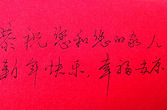 恭祝您和您的家人
新年快乐，幸福安康